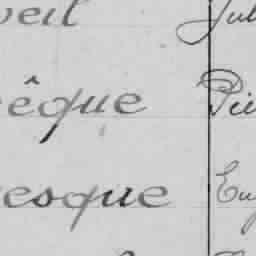 veil Jul
êque Pie
esque Eug